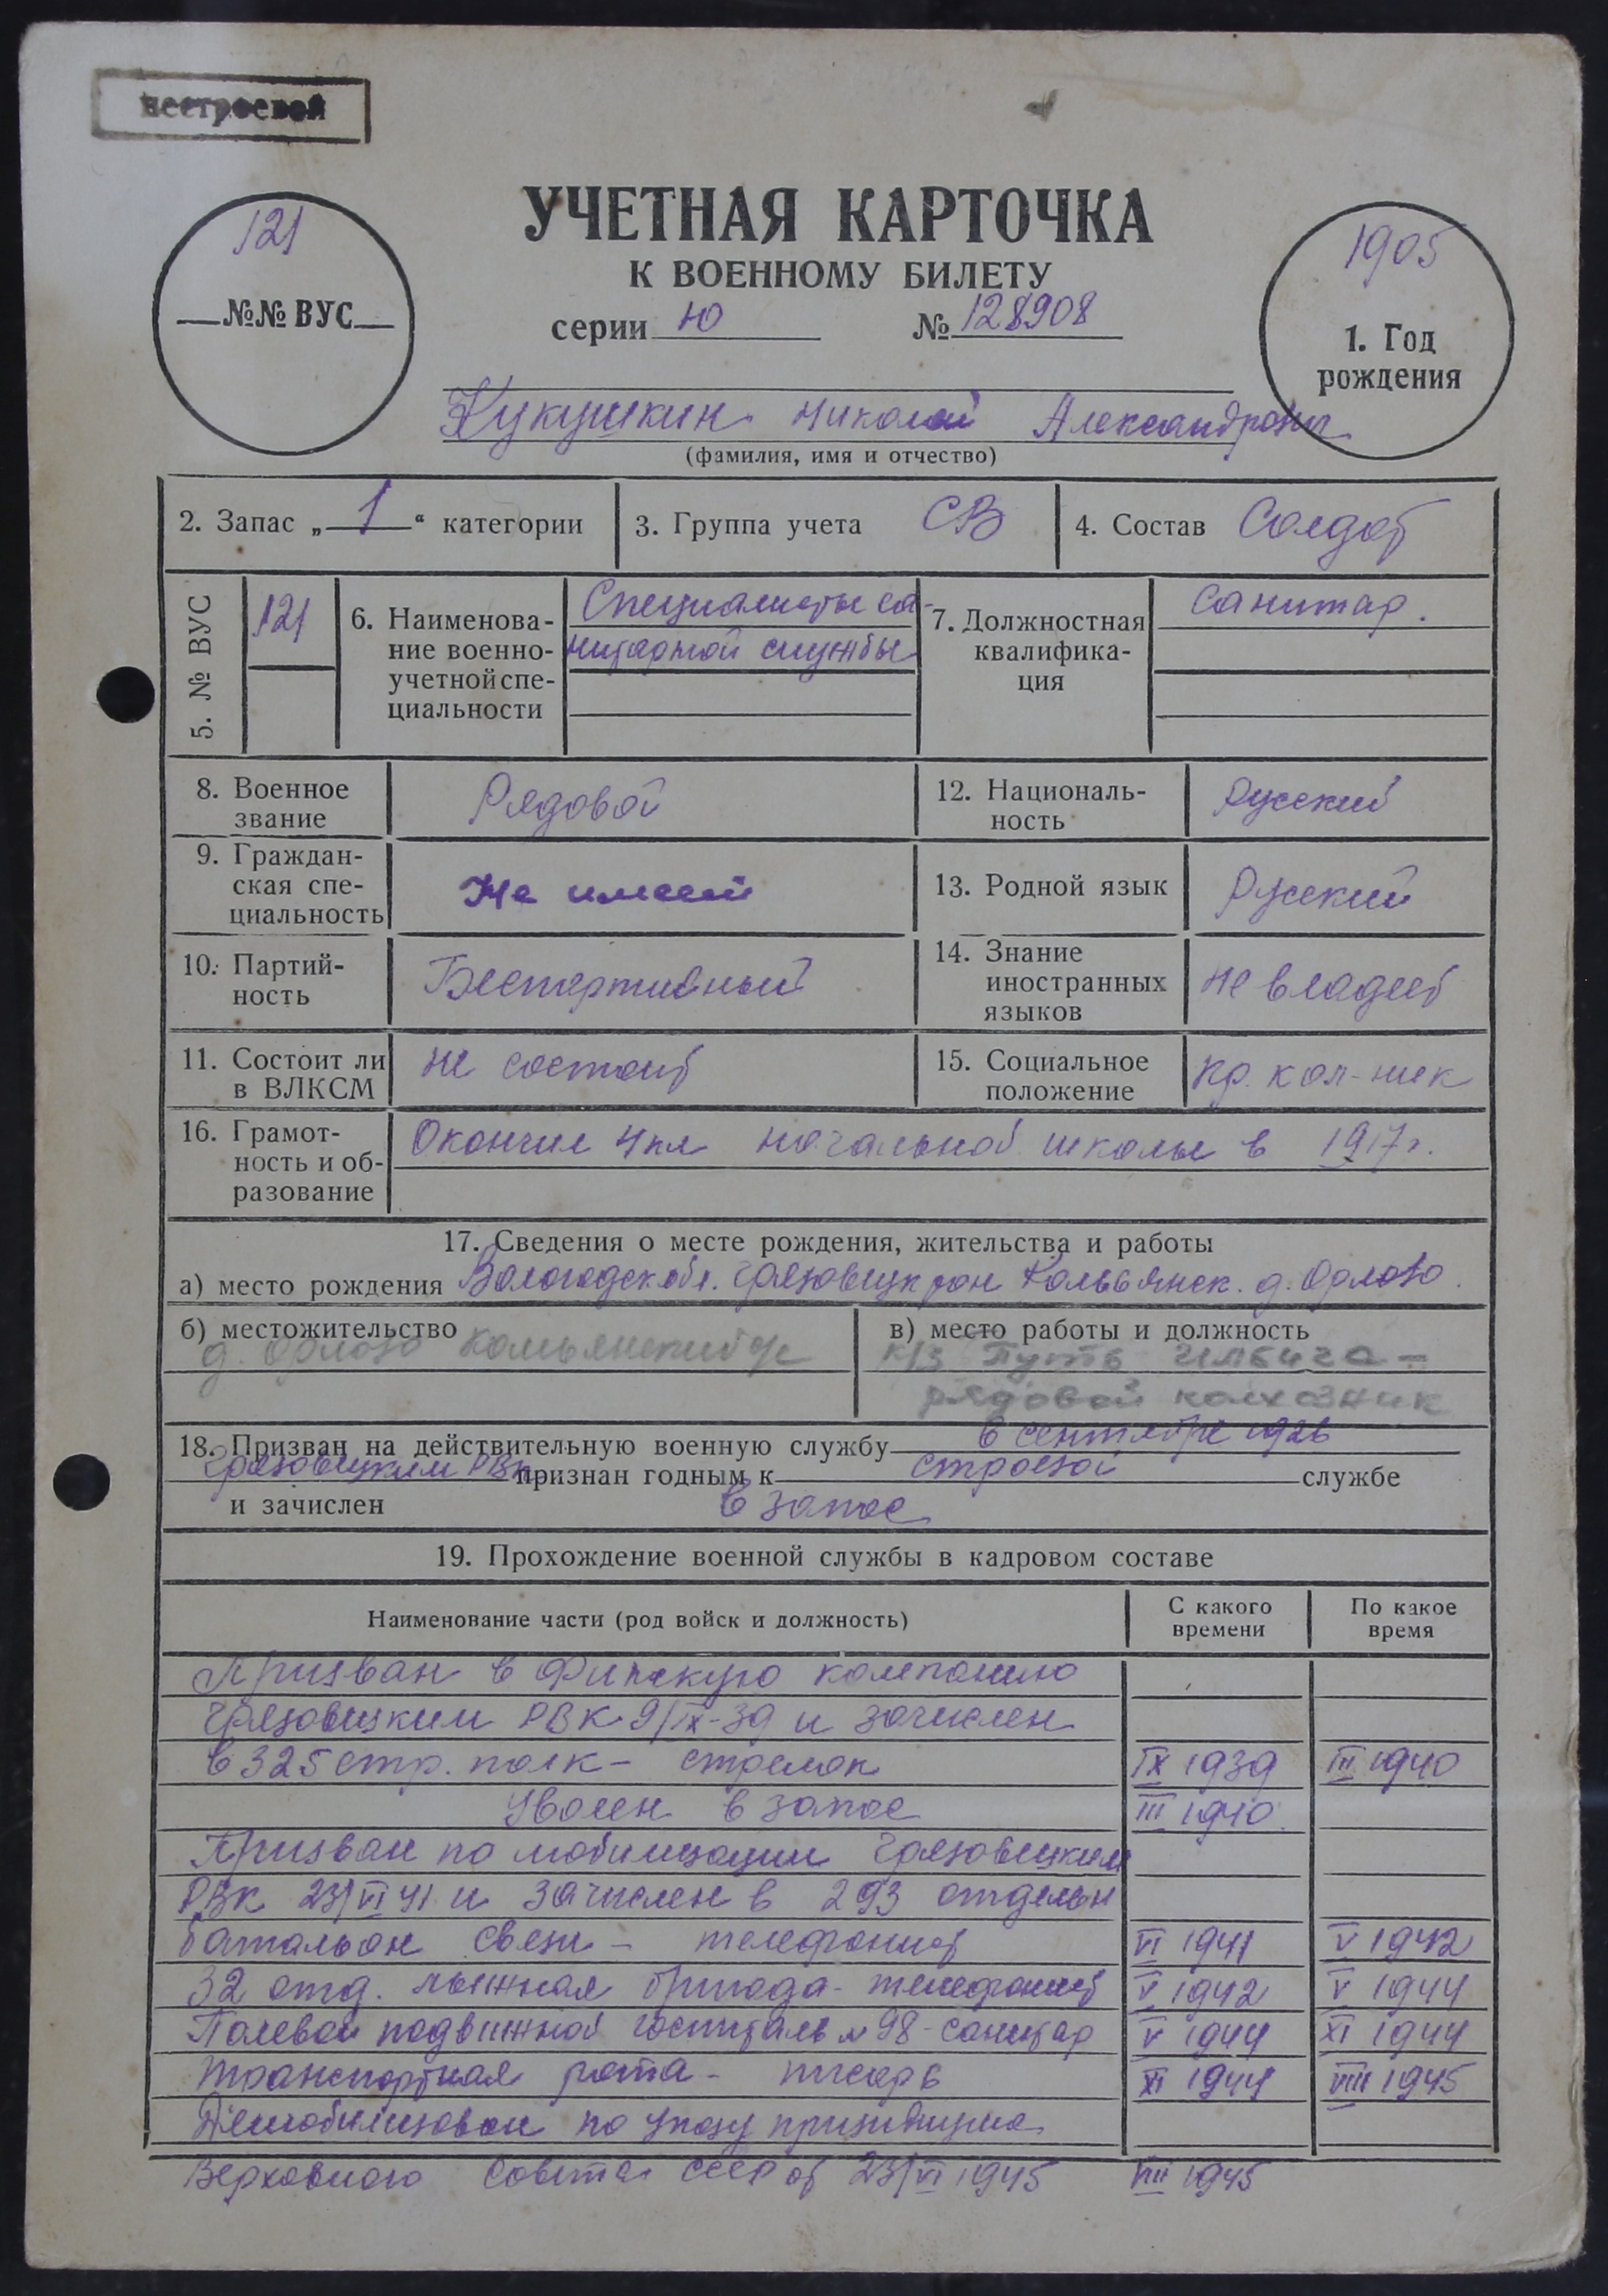 нестроевой
121
№№ ВУС
УЧЕТНАЯ КАРТОЧКА
К ВОЕННОМУ БИЛЕТУ
серии Ю № 128908
1905
1. Год
рождения
Кукушкин Николай Александрович
(фамилия, имя и отчество)
2. Запас „ 1 “ категории
3. Группа учета СВ
4. Состав Солдат
5. № ВУС
121
6. Наименова-
ние военно-
учетной спе-
циальности
Специалисты са-
нитарной службы
7. Должностная
квалифика-
ция
Санитар.
8. Военное
звание
Рядовой
12. Националь-
ность
Русский
9. Граждан-
ская спе-
циальность
Не имеет
13. Родной язык
Русский
10. Партий-
ность
Беспартийный
14. Знание
иностранных
языков
не владеет
11. Состоит ли
в ВЛКСМ
не состоит
15. Социальное
положение
кр. кол-ник
16. Грамот-
ность и об-
разование
Окончил 4 кл начальной школы в 1917 г.
17. Сведения о месте рождения, жительства и работы
а) место рождения Вологодск обл. Грязовецк рон д. Орлово.
б) местожительство
д. Орлово Комьянский с/с
в) место работы и должность
к/з Путь Ильича -
рядовой колхозник
18. Призван на действительную военную службу в сентябре 1926
Грязовецким РВК признан годным к строевой службе
и зачислен в запас
19. Прохождение военной службы в кадровом составе
Наименование части (род войск и должность)
С какого
времени
По какое
время
Призван в Финскую компанию
Грязовецким РВК 9/IX-39 и зачислен
в 325 стр. полк - стрелок IX 1939 III 1940
Уволен в запас III 1940.
Призван по мобилизации Грязовецким
РВК 23/VI 41 и зачислен в 293 отдельн
батальон связи - телефонист VI 1941 V 1942
32 отд. лыжная бригада - телефонист V 1942 V 1944
Полевой подвижной госпиталь № 98 - санитар V 1944 XI 1944
Транспортная рота - писарь XI 1944 VIII 1945
Демобилизован по указу призидиума
Верховного Совета СССР от 23/VI 1945 VIII 1945